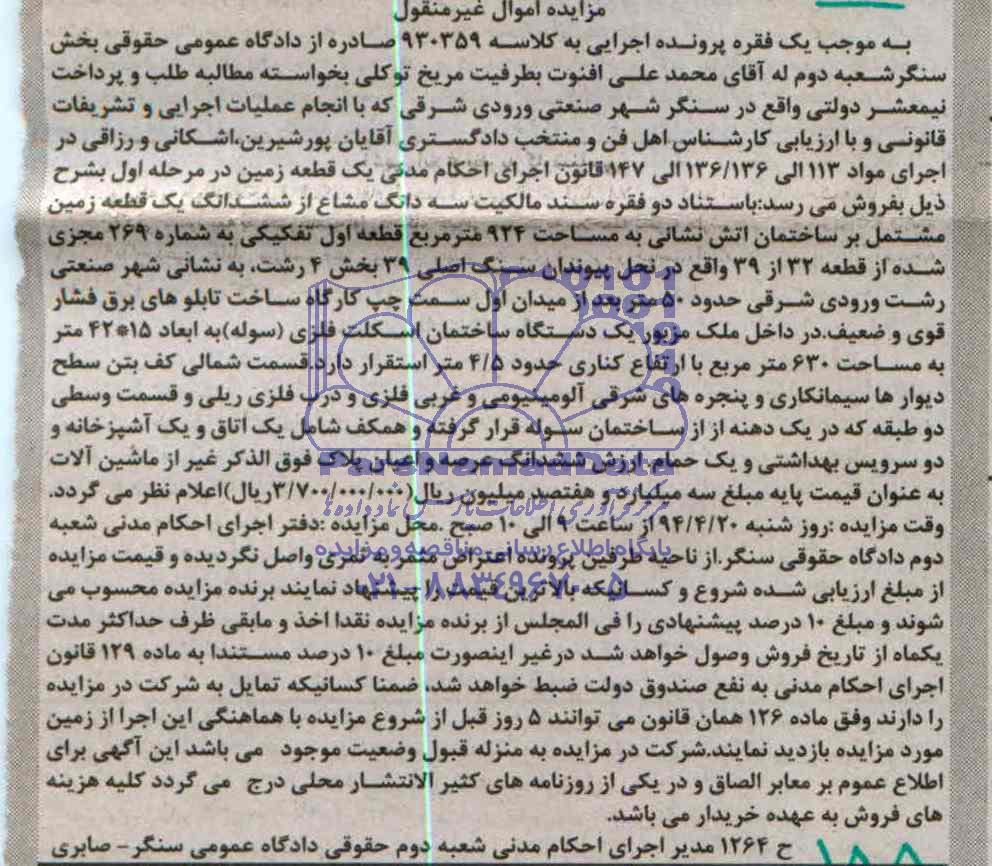 مزایده اموال غیرمنقول
به موجب یک فقره پرونده اجرایی به کلاسه ۹۳۰۳۵۹ صادره از دادگاه عمومی حقوقی بخش
سنگرشعبه دوم له آقای محمد علی افنوت بطرفیت مریخ توکلی بخواسته مطالبه طلب و پرداخت
نیمعشر دولتی واقع در سنگر شهر صنعتی ورودی شرقی که با انجام عملیات اجرایی و تشریفات
قانونی و با ارزیابی کارشناس اهل فن و منتخب دادگستری آقایان پورشیرین،اشکانی و رزاقی در
اجرای مواد ۱۱۳ الی ۱۳۶/۱۳۶ الی ۱۴۷ قانون اجرای احکام مدنی یک قطعه زمین در مرحله اول بشرح
ذیل بفروش می رسد:باستناد دو فقره سند مالکیت سه دانگ مشاع از ششدانگ یک قطعه زمین
مشتمل بر ساختمان اتش نشانی به مساحت ۹۲۴ مترمربع قطعه اول تفکیکی به شماره ۲۶۹ مجزی
شده از قطعه ۳۲ از ۳۹ واقع در نخل پیوندان سنگ اصلی ۳۹ بخش ۴ رشت، به نشانی شهر صنعتی
رشت ورودی شرقی حدود ۵۰ متر بعد از میدان اول سمت چپ کارگاه ساخت تابلو های برق فشار
قوی و ضعیف.در داخل ملک مزبور یک دستگاه ساختمان اسکلت فلزی (سوله)به ابعاد ۱۵*۴۲ متر
به مساحت ۶۳۰ متر مربع با ارتفاع کناری حدود ۴/۵ متر استقرار دارد.قسمت شمالی کف بتن سطح
دیوار ها سیمانکاری و پنجره های شرقی آلومینیومی و غربی فلزی و درب فلزی ریلی و قسمت وسطی
دو طبقه که در یک دهنه از از ساختمان سوله قرار گرفته و همکف شامل یک اتاق و یک آشپزخانه و
دو سرویس بهداشتی و یک حمام.ارزش ششدانگ عرصه و اعیان پلاک فوق الذکر غیر از ماشین آلات
به عنوان قیمت پایه مبلغ سه میلیارد و هفتصد میلیون ریال(۳/۷۰۰/۰۰۰/۰۰۰ریال)اعلام نظر می گردد.
وقت مزایده :روز شنبه ۹۴/۴/۲۰ از ساعت ۹ الی ۱۰ صبح .محل مزایده :دفتر اجرای احکام مدنی شعبه
دوم دادگاه حقوقی سنگر.از ناحیه طرفین پرونده اعتراض مثمر به ثمری واصل نگردیده و قیمت مزایده
از مبلغ ارزیابی شده شروع و کسانیکه بالاترین قیمت را پیشنهاد نمایند برنده مزایده محسوب می
شوند و مبلغ ۱۰ درصد پیشنهادی را فی المجلس از برنده مزایده نقدا اخذ و مابقی ظرف حداکثر مدت
یکماه از تاریخ فروش وصول خواهد شد درغیر اینصورت مبلغ ۱۰ درصد مستندا به ماده ۱۲۹ قانون
اجرای احکام مدنی به نفع صندوق دولت ضبط خواهد شد، ضمنا کسانیکه تمایل به شرکت در مزایده
را دارند وفق ماده ۱۲۶ همان قانون می توانند ۵ روز قبل از شروع مزایده با هماهنگی این اجرا از زمین
مورد مزایده بازدید نمایند.شرکت در مزایده به منزله قبول وضعیت موجود می باشد این آگهی برای
اطلاع عموم بر معابر الصاق و در یکی از روزنامه های کثیر الانتشار محلی درج می گردد کلیه هزینه
های فروش به عهده خریدار می باشد.
ح ۱۲۶۴ مدیر اجرای احکام مدنی شعبه دوم حقوقی دادگاه عمومی سنگر- صابری
ParsNamadData
پایگاه اطلاع رسانی مناقصه و مزایده
۰۲۱-۸۸۳۴۹۶۷۰-۵